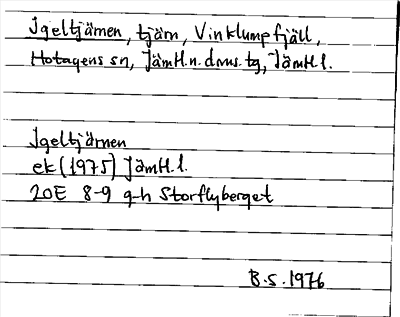 Igeltjärnen, tjärn, Vinklumpfjäll,
Hotagens sn, Jämtl.n.doms.tg, Jämtl.l.
Igeltjärnen
ek (1975) Jämtl.l.
20E 8-9 g-h Storflyberget
B.S. 1976